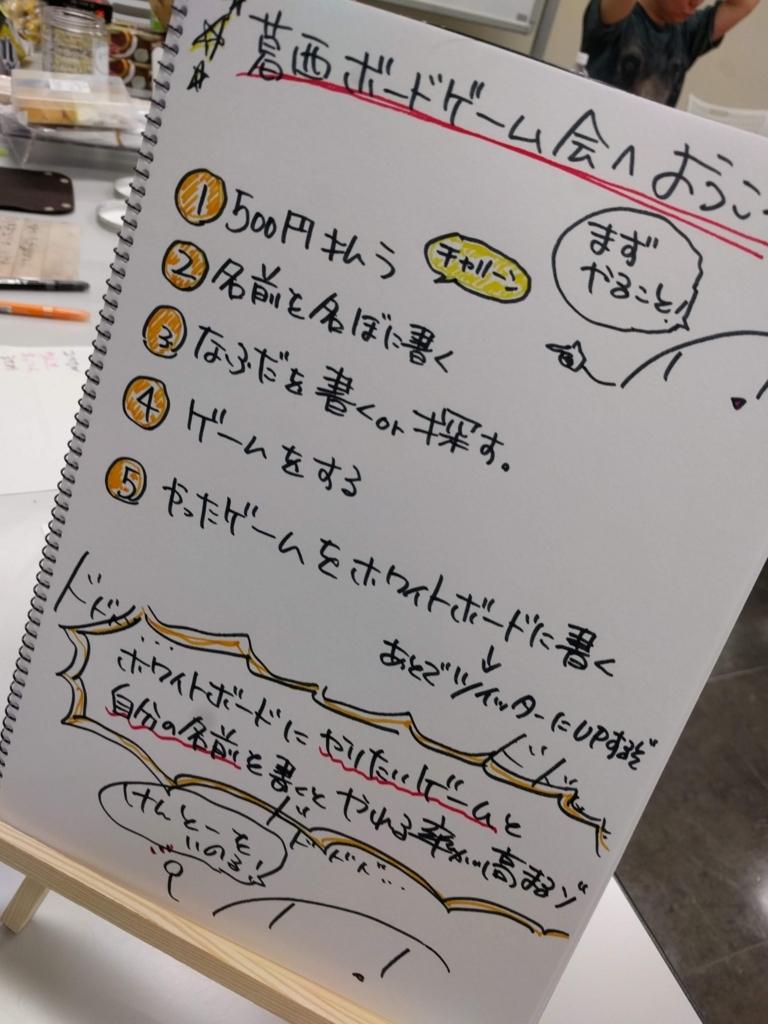 葛西ボードゲーム会へようこ
まず
やること!
① 500円払う
チャリーン
② 名前を名ぼに書く
③ なふだを書くor探す。
④ ゲームをする
⑤ やったゲームをホワイトボードに書く
↓
あとでツイッターにUPするぞ
ドドド...
ホワイトボードにやりたいゲームと
自分の名前を書くとやれる率が高まるゾ
ドドド...
ドドドド...
けんとーを
いのる!